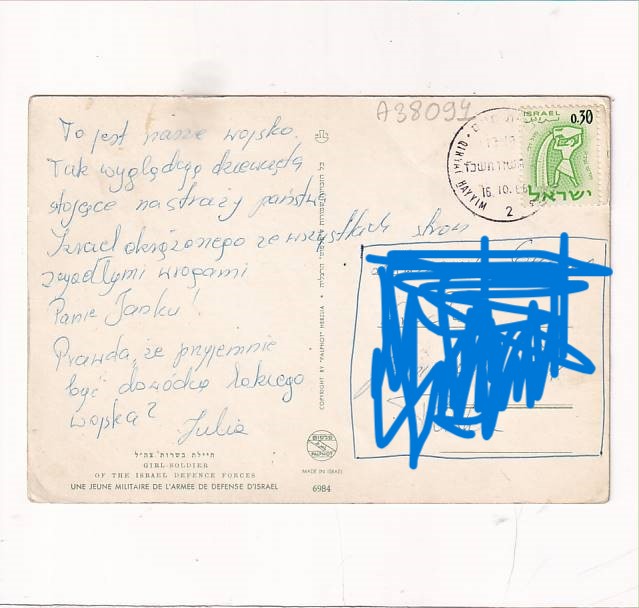 A38094
ISRAEL
0.30
ישראל
16.10.66
2
To jest nasze wojsko.
Tak wyglądają dziewczęta
stojące na straży państwa
Izrael okrążonego ze wszystkich stron
zajadłymi wrogami
Panie Janku!
Prawda, że przyjemnie
być dowódcą takiego
wojska?
Julia
חיילת בשרות צה"ל
GIRL-SOLDIER
OF THE ISRAEL DEFENCE FORCES
UNE JEUNE MILITAIRE DE L'ARMÉE DE DEFENSE D'ISRAEL
COPYRIGHT BY "PALPHOT" HERZLIA
PALPHOT
MADE IN ISRAEL
6984